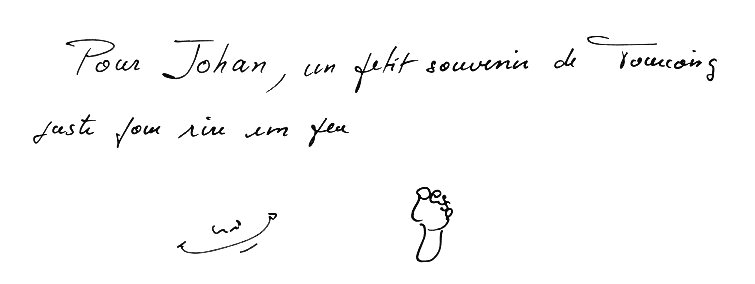 Pour Johan, un petit souvenir de Tourcoing
juste pour rire un peu